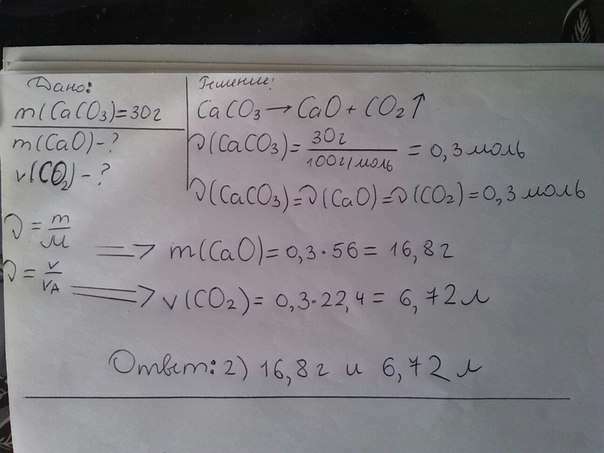 Дано:
m(CaCO₃)=30г
m(CaO)-?
v(CO₂)-?
Решение:
CaCO₃→CaO+CO₂↑
ν(CaCO₃)=30г/100г/моль=0,3моль
ν(CaCO₃)=ν(CaO)=ν(CO₂)=0,3моль
ν=m/M
=> m(CaO)=0,3·56=16,8г
ν=v/vA
=> v(CO₂)=0,3·22,4=6,72л
Ответ: 2) 16,8г и 6,72л